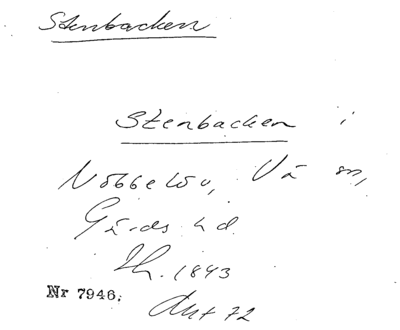 Stenbacken
Stenbacken i
Nöbbelöv, Vä sn,
Gärds hd.
Th. 1843
Nr 7946.
Aut 72